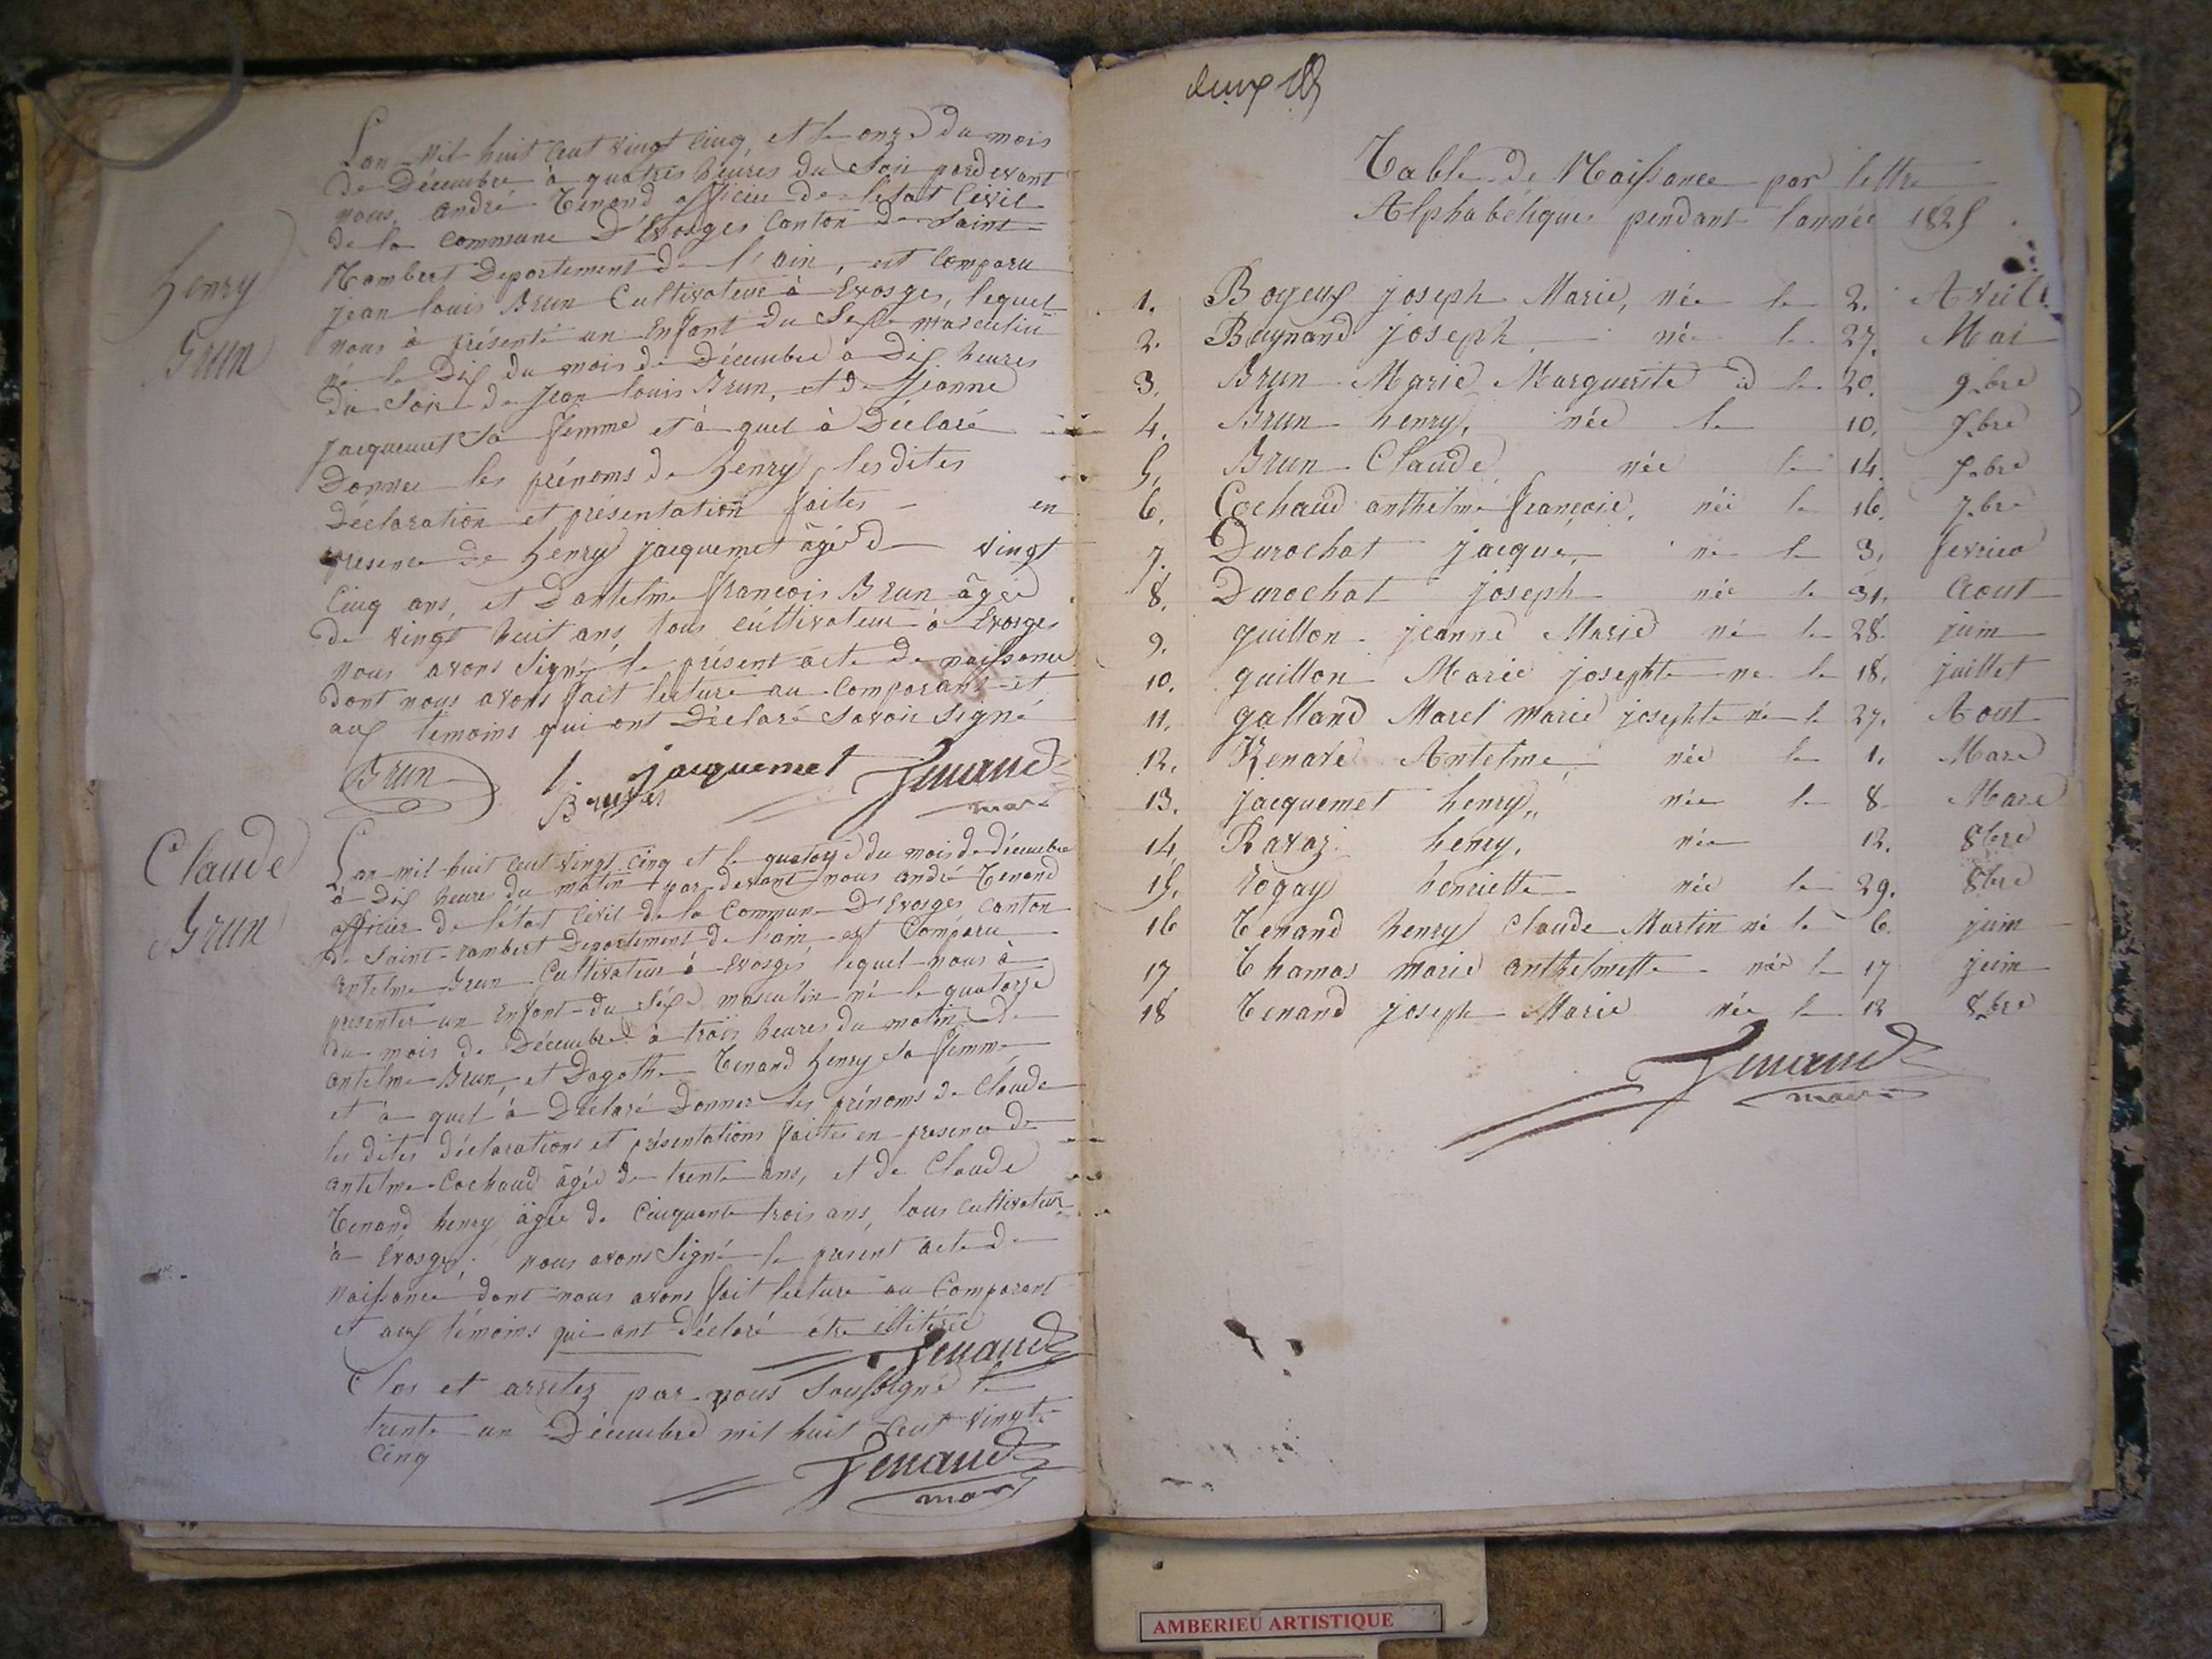 Henry
Brun
L'an mil huit cent vingt cinq, et le onze du mois
de Décembre à quatres heures du Soir pardevant
nous, andré Tenand officier de l'état Civil
de la Commune D'Evosges Canton de Saint=
Rambert Departement de l'ain, est Comparu
jean louis Brun Cultivateur à Evosges, lequel
nous à présenté un Enfant du Sexe masculin
né le Dix du mois de Décembre à Dix heures
du Soir de Jean louis Brun, et de Jeanne
jacquemet Sa femme et à quel à Déclaré
Donner les prénoms de henry, les dites
Déclaration et présentation faites - en
presence de henry jacquemet âgé de vingt
Cinq ans, et Dantelme françois Brun âgé
de vingt huit ans, tous cultivateur à Evosges
nous avons Signé le présent acte de naissance
dont nous avons fait lecture au Comparant et
aux temoins qui ont Déclaré Savoir signé
Brun jacquemet Tenand
maire
Claude
Brun
L'an mil huit cent vingt cinq et le quatorze du mois de décembre
à Dix heures du matin par devant nous andré Tenand
officier de l'état Civil de la Commune D'Evosges Canton
de Saint=rambert Departement de l'ain est Comparu
antelme Brun Cultivateur à Evosges lequel nous à
presenter un Enfant du séxe masculin né le quatorze
du mois de Décembre à trois heures du matin de
antelme Brun, et Dagathe Tenand henry sa femme
et à quel à Déclaré Donner les prénoms de Claude
les dites déclarations et présentations faites en presence de
antelme Cochaud âgé de trente ans, et de Claude
Tenand henry âgé de Cinquante trois ans, tous cultivateur
à Evosges; nous avons Signé le présent acte de
naissance dont nous avons fait lecture au Comparant
et aux témoins qui ont déclaré être illitéré
Tenand
Clos et arretez par nous Soussigné le
trente un Décembre mil huit Cent vingt
Cinq
Tenand
maire
Table de Naissance par lettre
Alphabétiques pendant l'année 1825
1. Boyeux joseph Marie, née le 2. Avril
2. Baynand joseph, née le 27. Mai
3. Brun Marie Marguerite id le 20. 9.bre
4. Brun henry, née le 10. X.bre
5. Brun Claude née le 14. X.bre
6. Cochaud anthelme françois, née le 16. 7.bre
7. Durochat jacque, né le 3. fevrier
8. Durochat joseph née le 31. Aout
9. guillon jeanne Marie né le 28. juin
10. guillon Marie josephte né le 18. juillet
11. galland Marie josephte née le 27. Aout
12. Antelme née le 1. Mars
13. jacquemet henry,, née le 8 Mars
14. Ravaz henry, née 12. 8bre
15. Vogay henriette née le 29. 8bre
16 Tenand henry Claude Martin né le 6. juin
17 Thomas marie anthelmette née le 17 juin
18 Tenand joseph Marie née le 12 8.bre
Tenand
maire
AMBERIEU ARTISTIQUE